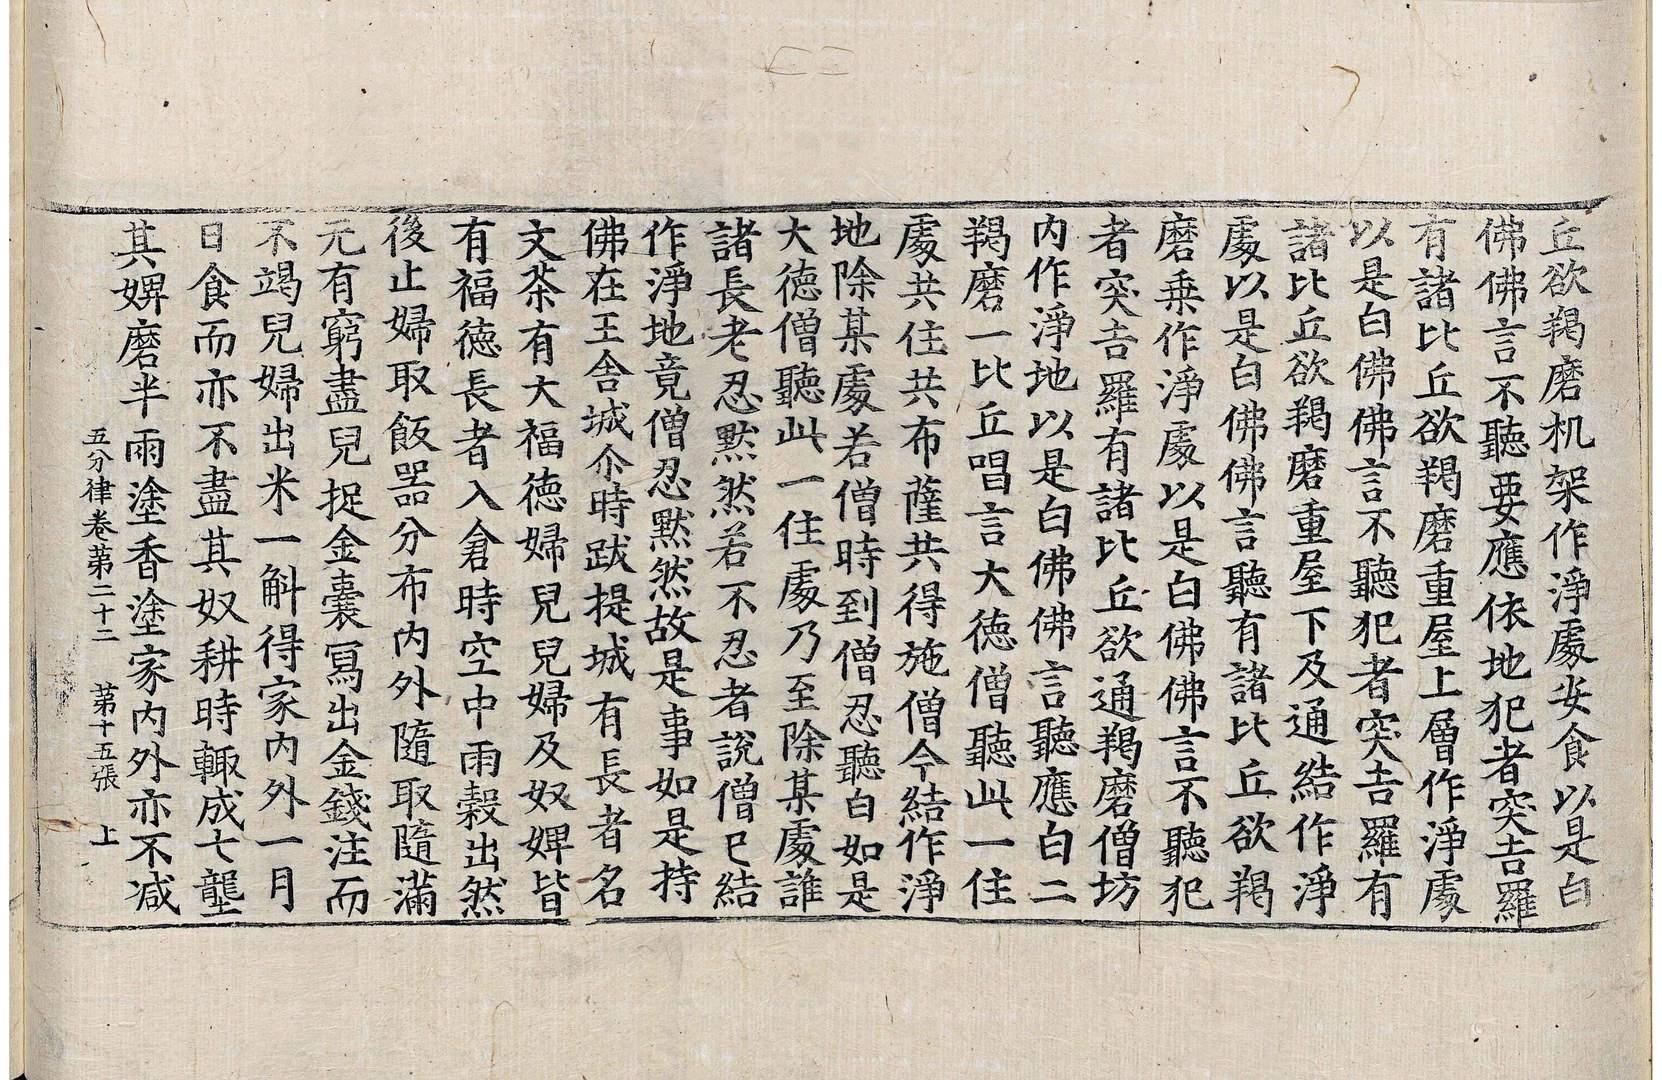 丘欲羯磨机架作淨處安食以是白
佛佛言不聽要應依地犯者突吉羅
有諸比丘欲羯磨重屋上層作淨處
以是白佛佛言不聽犯者突吉羅有
諸比丘欲羯磨重屋下及通結作淨
處以是白佛佛言聽有諸比丘欲羯
磨乗作淨處以是白佛佛言不聽犯
者突吉羅有諸比丘欲通羯磨僧坊
内作淨地以是白佛佛言聽應白二
羯磨一比丘唱言大德僧聽此一住
處共住共布薩共得施僧今結作淨
地除某處若僧時到僧忍聽白如是
大德僧聽此一住處乃至除某處誰
諸長老忍默然若不忍者說僧已結
作淨地竟僧忍默然故是事如是持
佛在王舍城尒時跋提城有長者名
文荼有大福德婦兒兒婦及奴婢皆
有福德長者入倉時空中雨穀出然
後止婦取飯器分布内外隨取隨滿
元有窮盡兒捉金囊寫出金錢注而
不竭兒婦出米一斛得家内外一月
日食而亦不盡其奴耕時輙成七壟
其婢磨半雨塗香塗家内外亦不減
五分律卷第二十二 第十五張 上